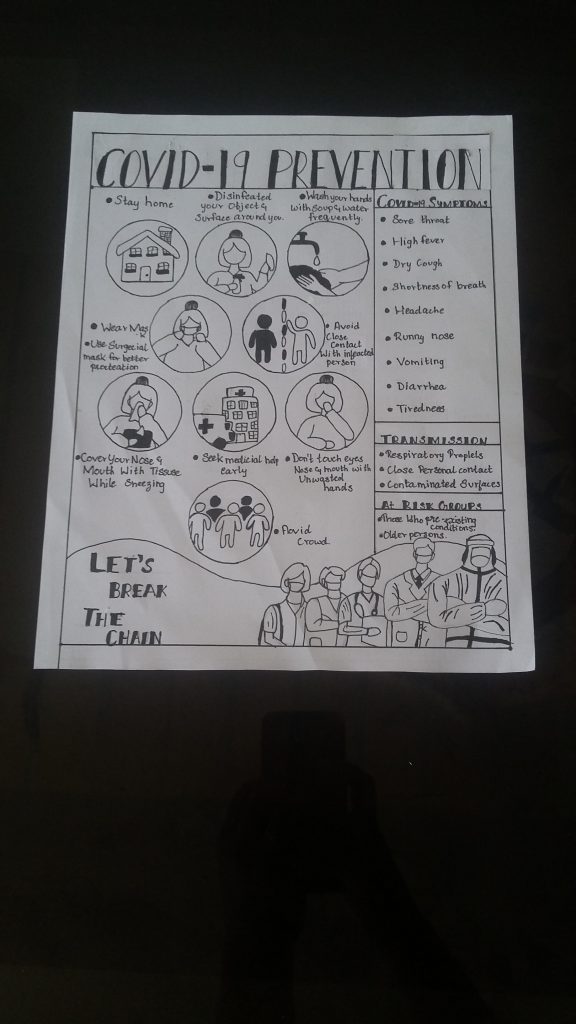 COVID-19 PREVENTION
• Stay home
• Disinfeated
your Object &
Surface around you.
• Wash your hands
with Soup & water
frequently.
• Wear Mas
k
• Use Surgecial
mask for better
procteation
• Avoid
Close
Contact
With infeacted
person
• Cover Your Nose &
Mouth With Tissuse
While Sneezing
• Seek medicial help
early
• Don't touch eyes
Nose & mouth with
Unwasted
hands
• Aovid
Crowd.
LET'S
BREAK
THE
CHAIN
COVID-19 SYMPTOMS
• Sore throat
• High fever
• Dry Cough
• Shortness of breath
• Headache
• Runny nose
• Vomiting
• Diarrhea
• Tiredness
TRANSMISSION
• Respiratory Droplets
• Close Personal contact
• Contaminated Surfaces
At RISK GROUPS
• Those Who pre-existing
conditions.
• Older persons.